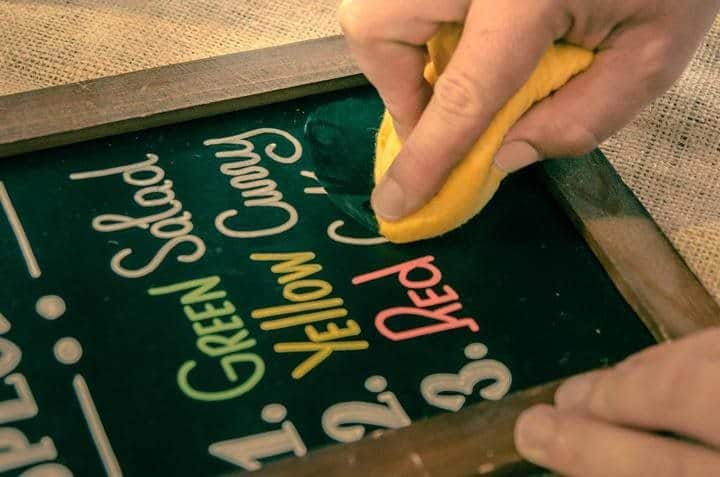 1. GREEN Salad
2. YELLOW Curry
3. RED